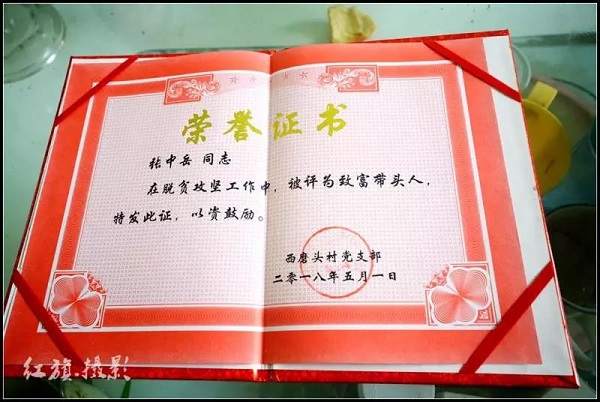 荣誉证书
张中岳 同志
在脱贫攻坚工作中，被评为致富带头人，
特发此证，以资鼓励。
西磨头村党支部
二零一八年五月一日
红旗·摄影